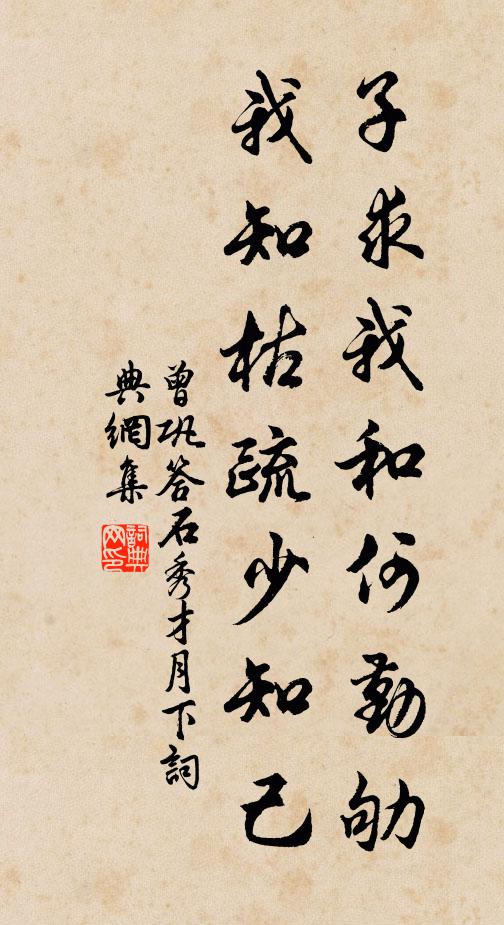 子求我和何勤劬
我知枯疏少知己
曾巩答石秀才月下詞
典網集
詞典
网印